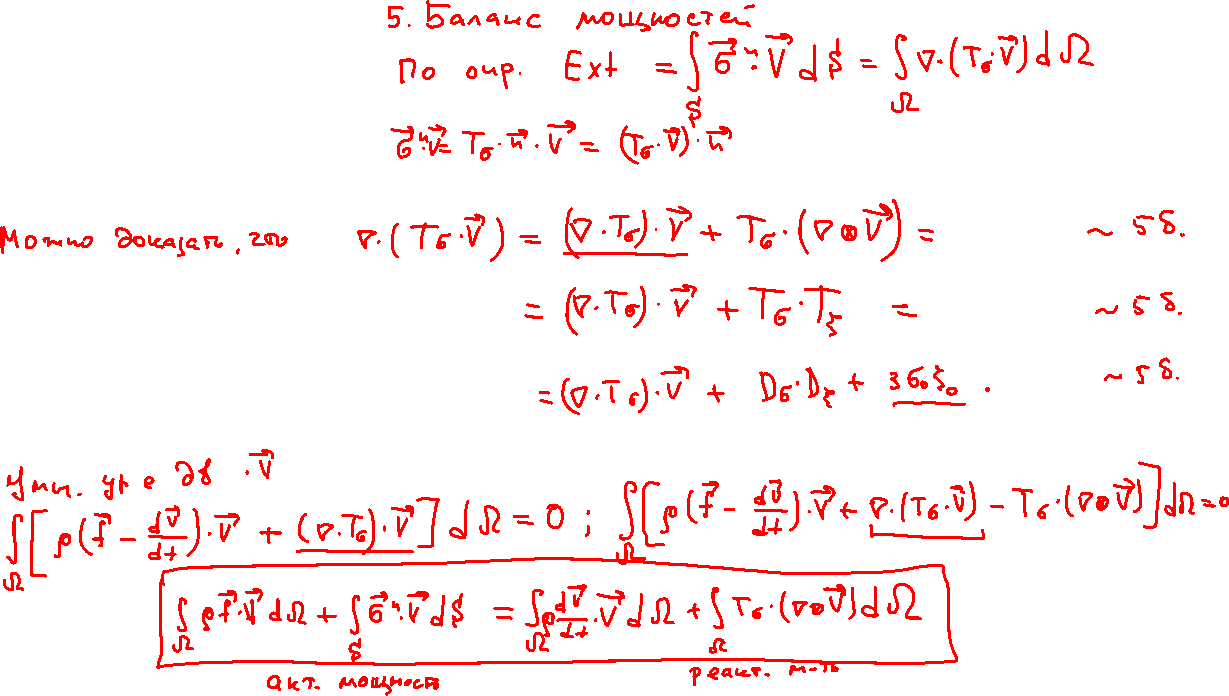 5. Баланс мощностей
По опр. Ext = ∫_S σ⃗ⁿ·V⃗ dS = ∫_Ω ∇·(T_σ·V⃗) dΩ
σ⃗ⁿ·V⃗ = T_σ·n⃗·V⃗ = (T_σ·V⃗)·n⃗
Можно доказать, что ∇·(T_σ·V⃗) = (∇·T_σ)·V⃗ + T_σ·(∇⊗V⃗) = ~ 5 б.
= (∇·T_σ)·V⃗ + T_σ·T_ξ = ~ 5 б.
= (∇·T_σ)·V⃗ + D_σ·D_ξ + 3σ₀ξ₀. ~ 5 б.
Умн. ур е дв ·V⃗
∫_Ω [ρ(f⃗ − dV⃗/dt)·V⃗ + (∇·T_σ)·V⃗] dΩ = 0 ; ∫_Ω [ρ(f⃗ − dV⃗/dt)·V⃗ + ∇·(T_σ·V⃗) − T_σ·(∇⊗V⃗)] dΩ = 0
∫_Ω ρf⃗·V⃗ dΩ + ∫_S σ⃗ⁿ·V⃗ dS = ∫_Ω ρ dV⃗/dt·V⃗ dΩ + ∫_Ω T_σ·(∇⊗V⃗) dΩ
акт. мощность реакт. м-ть